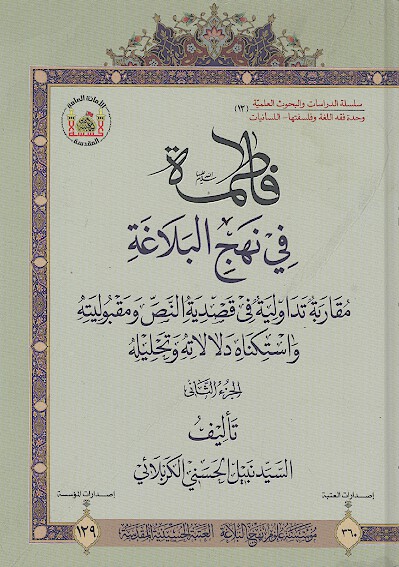 سلسلة الدراسات والبحوث العلمية (١٣)
وحدة فقه اللغة وفلسفتها - اللسانيات
الأمانة العامة
المقدسة
فاطمة
فِي نَهْجِ البَلَاغَةِ
مقاربة تداولية في قصدية النص ومقبوليته
واستكناه دلالاته وتحليله
الجزء الثاني
تأليف
السيد نبيل الحسني الكربلائي
إصدارات العتبة
٣٦٠
إصدارات المؤسسة
١٢٩
مؤسسة علوم نهج البلاغة العتبة الحسينية المقدسة